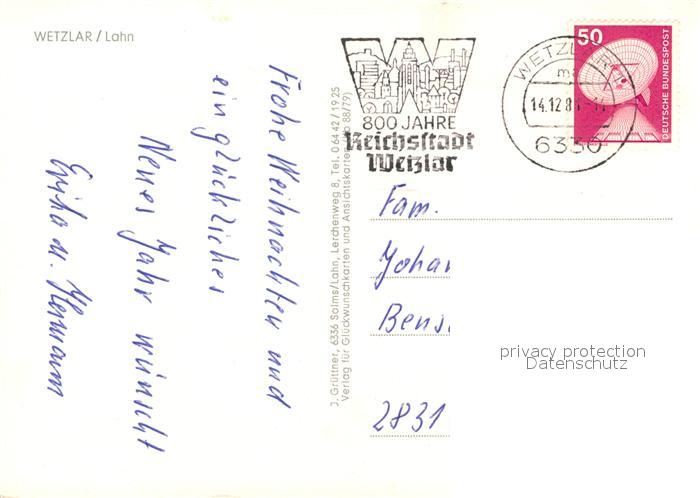 WETZLAR / Lahn
Frohe Weihnachten und
ein glückliches
Neues Jahr wünscht
Erika u. Hermann
J. Grüttner, 6336 Solms/Lahn, Lerchenweg 8, Tel. 0 64 42 / 19 25
Verlag für Glückwunschkarten und Ansichtskarten 88/79)
800 JAHRE
Reichsstadt
Wetzlar
WETZLAR
14.12.8
6330
50
DEUTSCHE BUNDESPOST
Fam.
Johan
Bens.
2831
privacy protection
Datenschutz